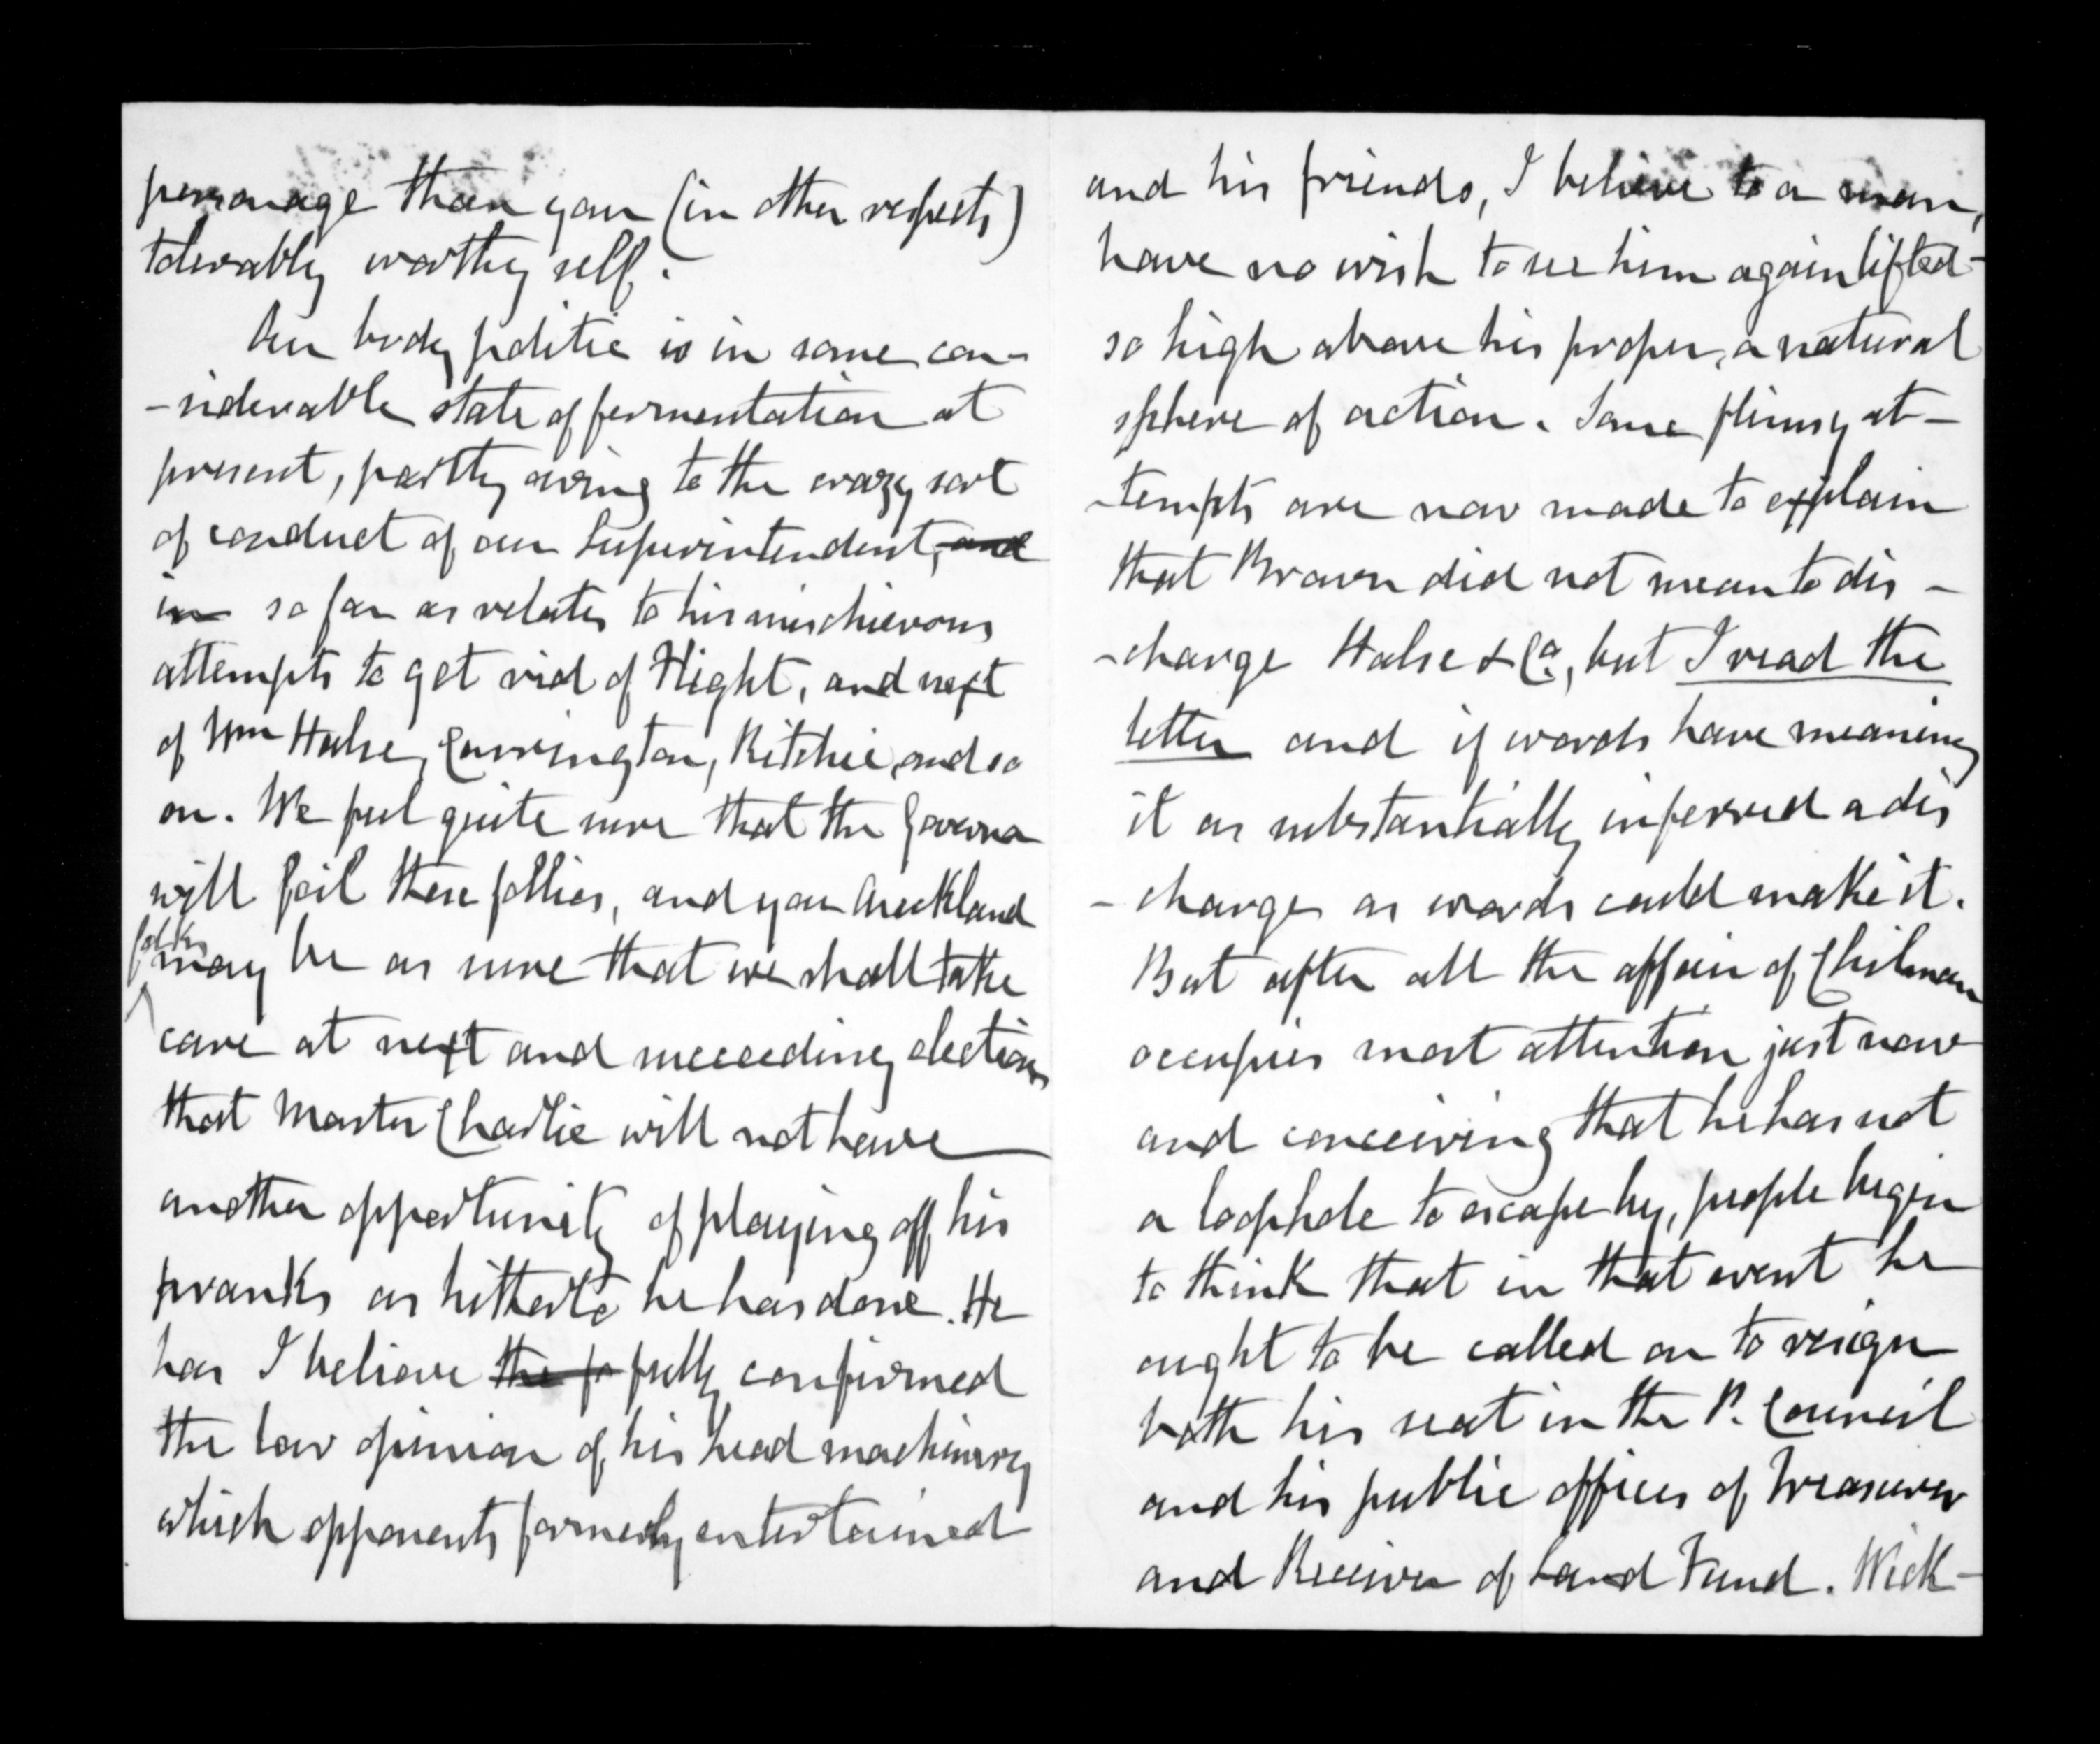 personage than your (in other respects)
tolerably worthy self.
Our body politic is in some con-
-siderable state of fermentation at
present, partly owing to the crazy sort
of conduct of our Superintendent, and
in so far as relates to his mischievous
attempts to get rid of Flight, and next
of Wm Halse, Carrington, Ritchie, and so
on. We feel quite sure that the Governor
will foil these follies, and you Auckland
folks may be as sure that we shall take
care at next and succeeding elections
that Master Charlie will not have
another opportunity of playing off his
pranks as hitherto he has done. He
has I believe the fo fully confirmed
the low opinion of his head machinery
which opponents formerly entertained
and his friends, I believe to a man,
have no wish to see him again lifted
so high above his proper, a natural
sphere of action. Some flimsy at-
-tempts are now made to explain
that Brown did not mean to dis-
-charge Halse & Co., but I read the
letter and if words have meaning
it as substantially inferred a dis
-charge as words could make it.
But after all the affair of Chilman
occupies most attention just now
and conceiving that he has not
a loophole to escape by, people begin
to think that in that event he
ought to be called on to resign
both his seat in the P. Council
and his public offices of Treasurer
and Receiver of Land Fund. Wick-